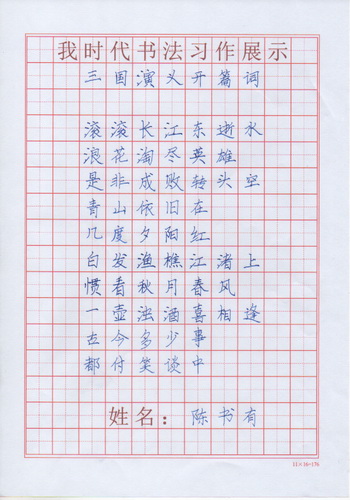 我时代书法习作展示
三国演义开篇词
滚滚长江东逝水
浪花淘尽英雄
是非成败转头空
青山依旧在
几度夕阳红
白发渔樵江渚上
惯看秋月春风
一壶浊酒喜相逢
古今多少事
都付笑谈中
姓名：陈书有
11×16=176